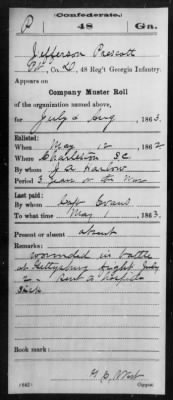 (Confederate.)
P 48 Ga.
Jefferson Prescott
Pvt, Co. D, 48 Reg't Georgia Infantry.
Appears on
Company Muster Roll
of the organization named above,
for July & Aug, 1863.
Enlisted:
When May 12, 1862
Where Charleston SC
By whom J A Harlow
Period 3 Years or the War
Last paid:
By whom Capt Evans
To what time May 1, 1863.
Present or absent absent
Remarks:
wounded in battle
at Gettysburg July
2 - Sent to hospital
Book mark:
(642)
Copyist.